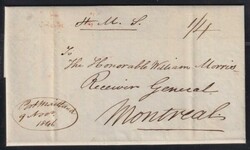 H. M. S.
1/4
To
The Honorable William Morris
Receiver General
Montreal
9 Novr
1846